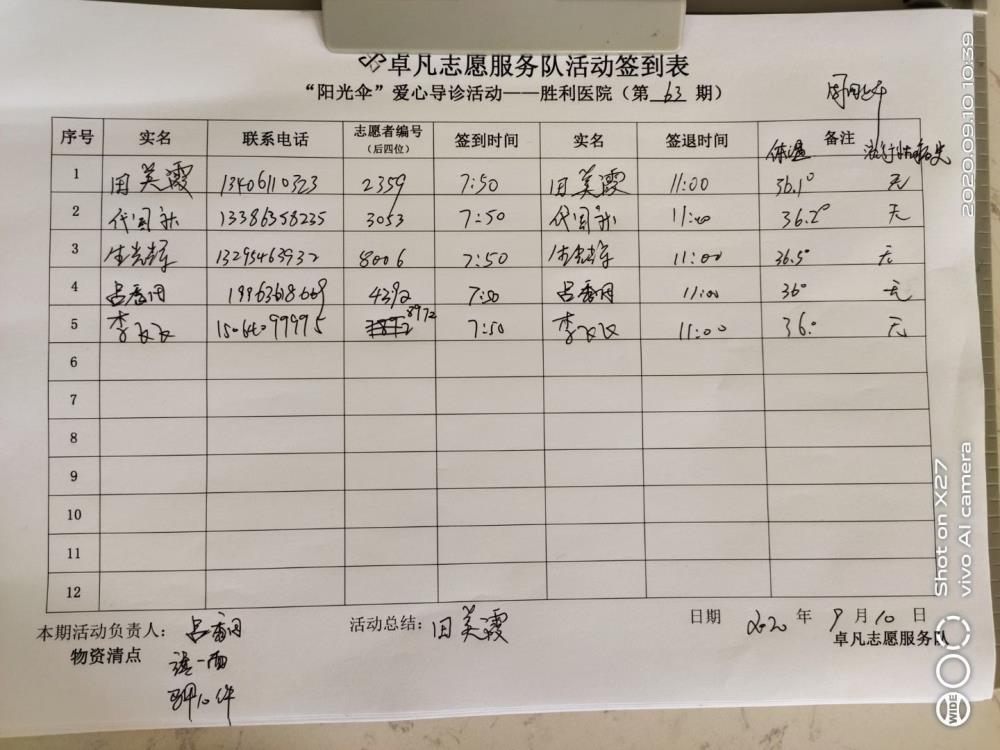 卓凡志愿服务队活动签到表
“阳光伞”爱心导诊活动——胜利医院（第 63 期）
序号 实名 联系电话 志愿者编号（后四位） 签到时间 实名 签退时间 备注
体温 流行性病史
1 田美霞 13406110323 2359 7:50 田美霞 11:00 36.1° 无
2 代国 13386358235 3053 7:50 代国 11:00 36.2° 无
3 13295463932 8006 7:50 11:00 36.5° 无
4 吕香月 4392 7:50 吕香月 11:00 36° 无
5 李飞飞 8972 7:50 李飞飞 11:00 36° 无
6
7
8
9
10
11
12
本期活动负责人： 吕香月 活动总结： 田美霞 日期 2020 年 9 月 10 日
物资清点 卓凡志愿服务队
2020.09.10 10:39
Shot on X27
vivo AI camera
WIDE